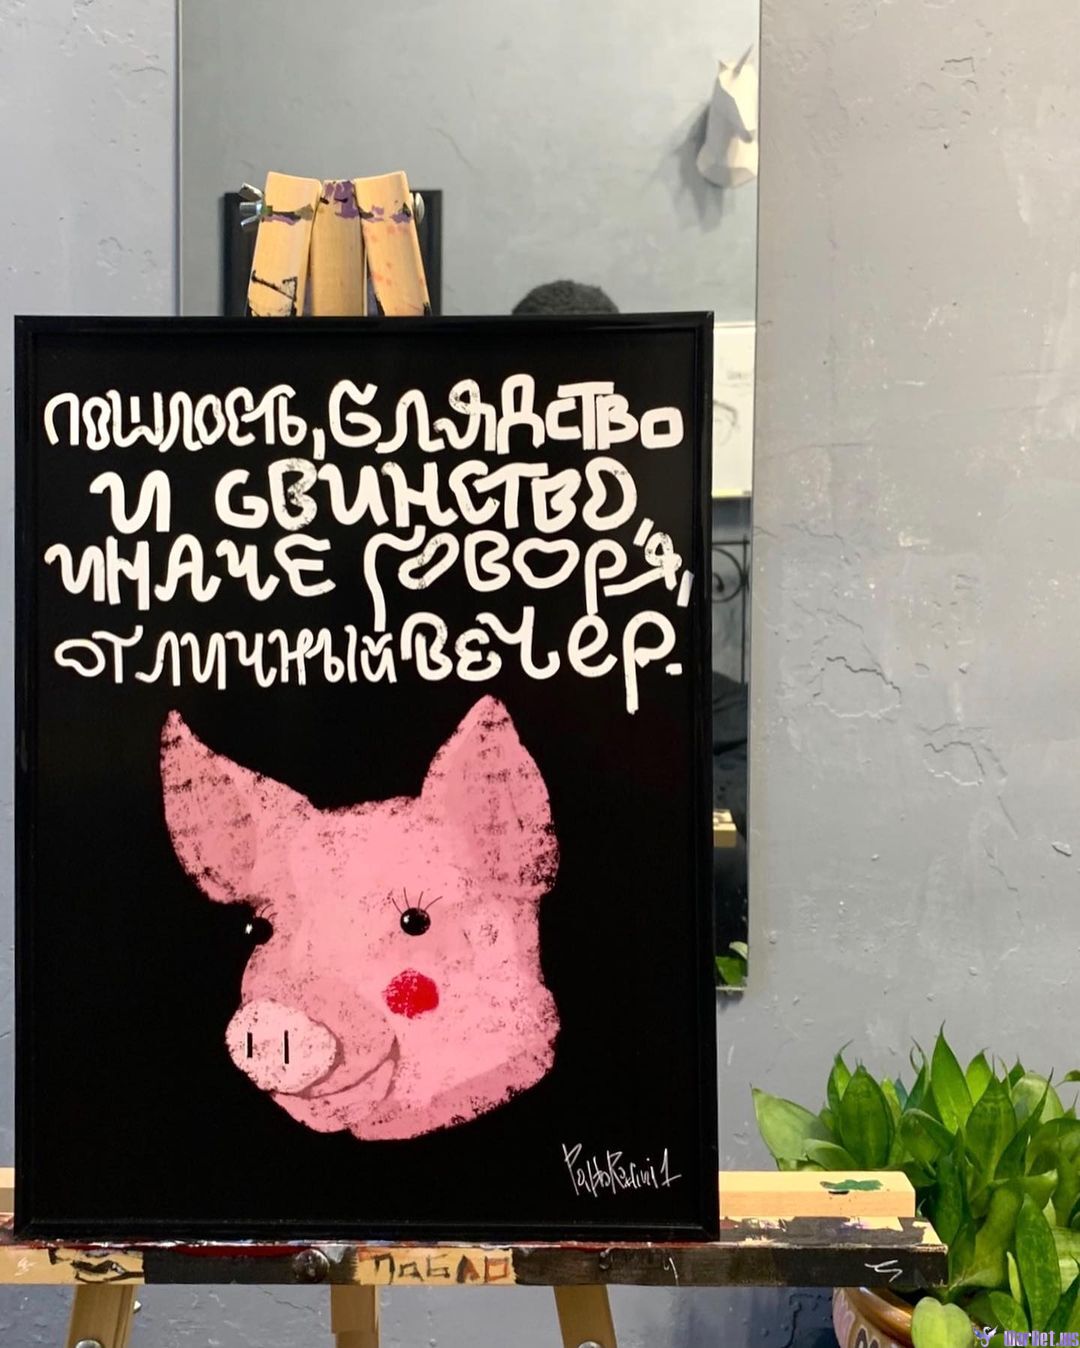 пошлость, блядство
и свинство,
иначе говоря,
отличный вечер.
PabloRadini1
ПАБЛО
Market.ws